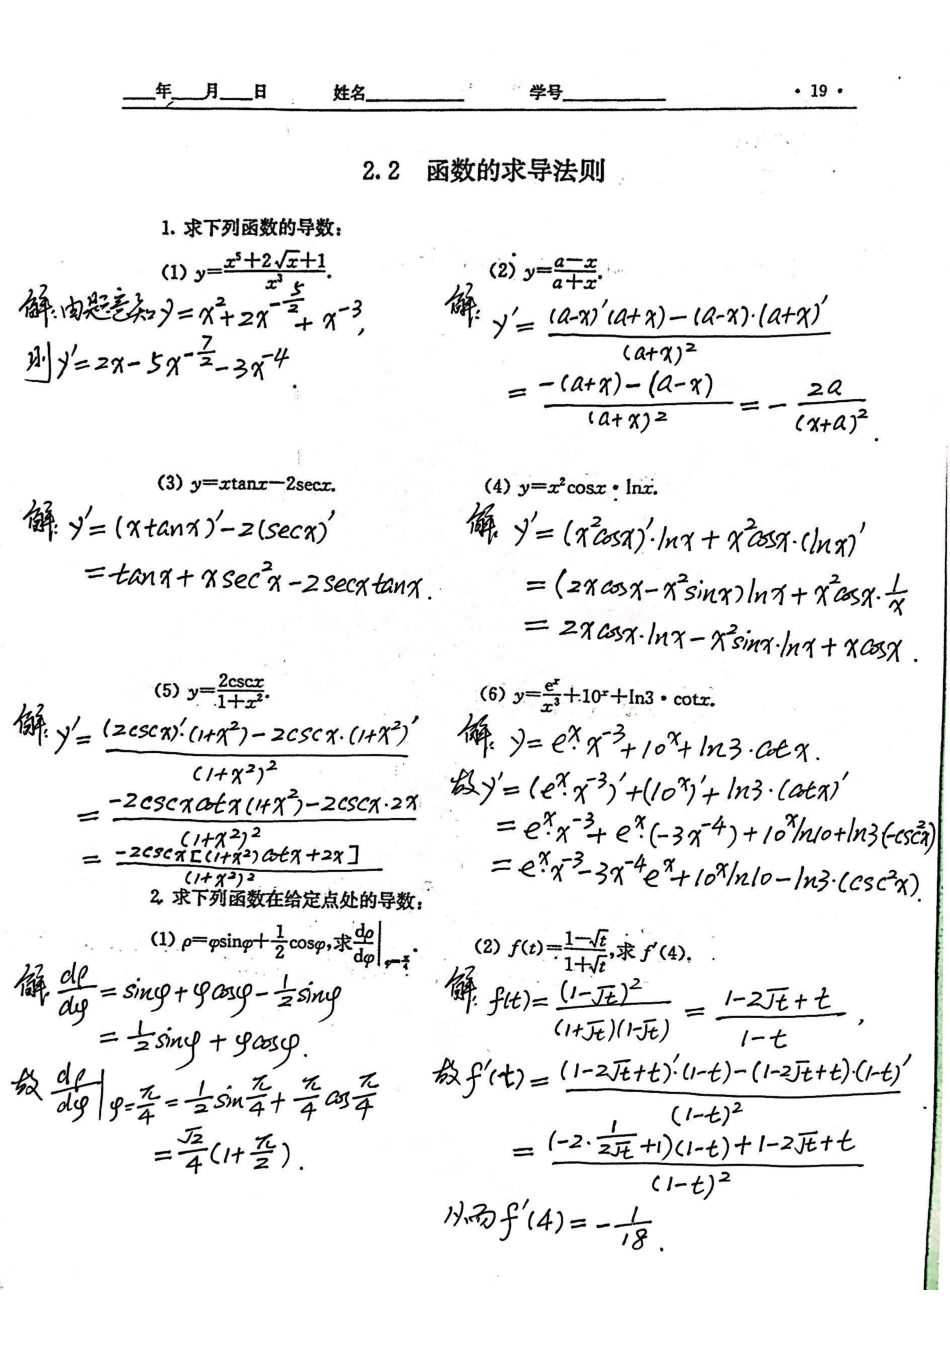 年 月 日 姓名 学号 · 19 ·
2.2 函数的求导法则
1. 求下列函数的导数:
(1) y=(x⁵+2√x+1)/x³.
解:由题意知 y=x²+2x^(-5/2)+x⁻³,
则y′=2x-5x^(-7/2)-3x⁻⁴.
(2) y=(a-x)/(a+x).
解: y′=((a-x)′(a+x)-(a-x)·(a+x)′)/(a+x)²
=(-(a+x)-(a-x))/(a+x)²=-2a/(x+a)².
(3) y=xtanx-2secx.
解: y′=(xtanx)′-2(secx)′
=tanx+xsec²x-2secxtanx.
(4) y=x²cosx·lnx.
解 y′=(x²cosx)′·lnx+x²cosx·(lnx)′
=(2xcosx-x²sinx)lnx+x²cosx·1/x
=2xcosx·lnx-x²sinx·lnx+xcosx.
(5) y=2cscx/(1+x²).
解: y′=((2cscx)′·(1+x²)-2cscx·(1+x²)′)/(1+x²)²
=(-2cscxcotx(1+x²)-2cscx·2x)/(1+x²)²
=-2cscx[(1+x²)cotx+2x]/(1+x²)²
(6) y=eˣ/x³+10ˣ+ln3·cotx.
解: y=eˣ·x⁻³+10ˣ+ln3·cotx.
故y′=(eˣ·x⁻³)′+(10ˣ)′+ln3·(cotx)′
=eˣ·x⁻³+eˣ·(-3x⁻⁴)+10ˣln10+ln3(-csc²x)
=eˣ·x⁻³-3x⁻⁴eˣ+10ˣln10-ln3·(csc²x).
2. 求下列函数在给定点处的导数:
(1) ρ=φsinφ+1/2cosφ,求dρ/dφ|φ=π/4.
解 dρ/dφ=sinφ+φcosφ-1/2sinφ
=1/2sinφ+φcosφ.
故 dρ/dφ|φ=π/4=1/2sinπ/4+π/4cosπ/4
=√2/4(1+π/2).
(2) f(t)=(1-√t)/(1+√t),求 f′(4).
解: f(t)=(1-√t)²/((1+√t)(1-√t))=(1-2√t+t)/(1-t),
故f′(t)=((1-2√t+t)′·(1-t)-(1-2√t+t)·(1-t)′)/(1-t)²
=((-2·1/(2√t)+1)(1-t)+1-2√t+t)/(1-t)²
从而f′(4)=-1/18.